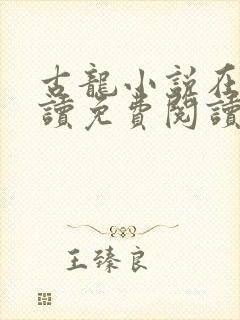 古龍小說在
讀免費閱讀
王臻良